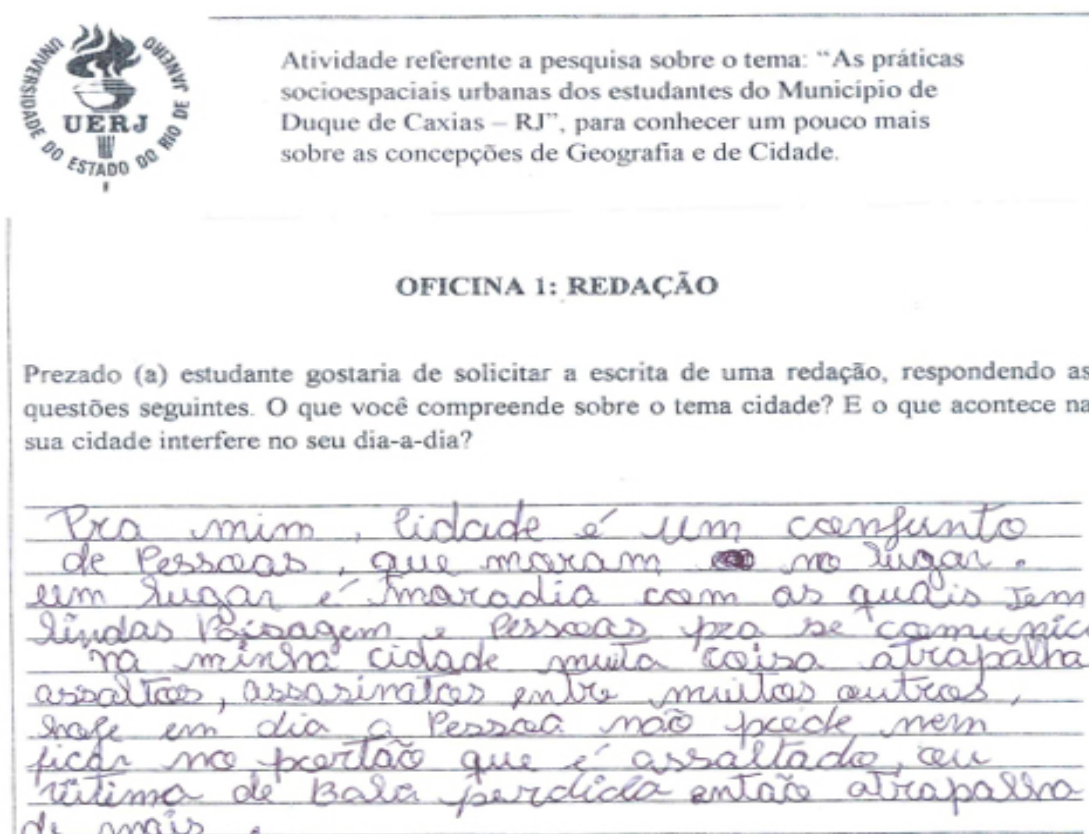 UNIVERSIDADE DO ESTADO DO RIO DE JANEIRO
UERJ
Atividade referente a pesquisa sobre o tema: “As práticas
socioespaciais urbanas dos estudantes do Município de
Duque de Caxias – RJ”, para conhecer um pouco mais
sobre as concepções de Geografia e de Cidade.
OFICINA 1: REDAÇÃO
Prezado (a) estudante gostaria de solicitar a escrita de uma redação, respondendo as
questões seguintes. O que você compreende sobre o tema cidade? E o que acontece na
sua cidade interfere no seu dia-a-dia?
Pra mim, Cidade é um conjunto
de Pessoas, que moram no lugar.
um lugar é maradia com as quais Tem
lindas Paisagem e Pessoas pra se comunic
na minha cidade muita coisa atrapalha
assaltos, assasinatos entre muitos outros,
hoje em dia a Pessoa não pode nem
ficar no portão que é assaltado, ou
vitima de Bala perdida então atrapalha
de mais.